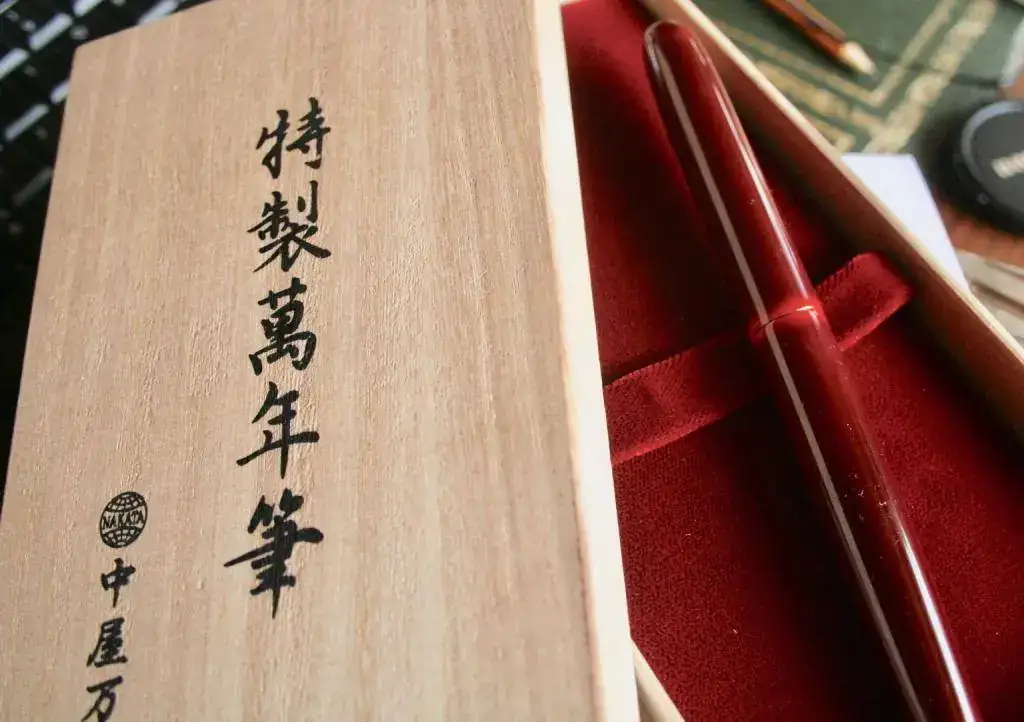 特製萬年筆
NAKAYA
中屋万